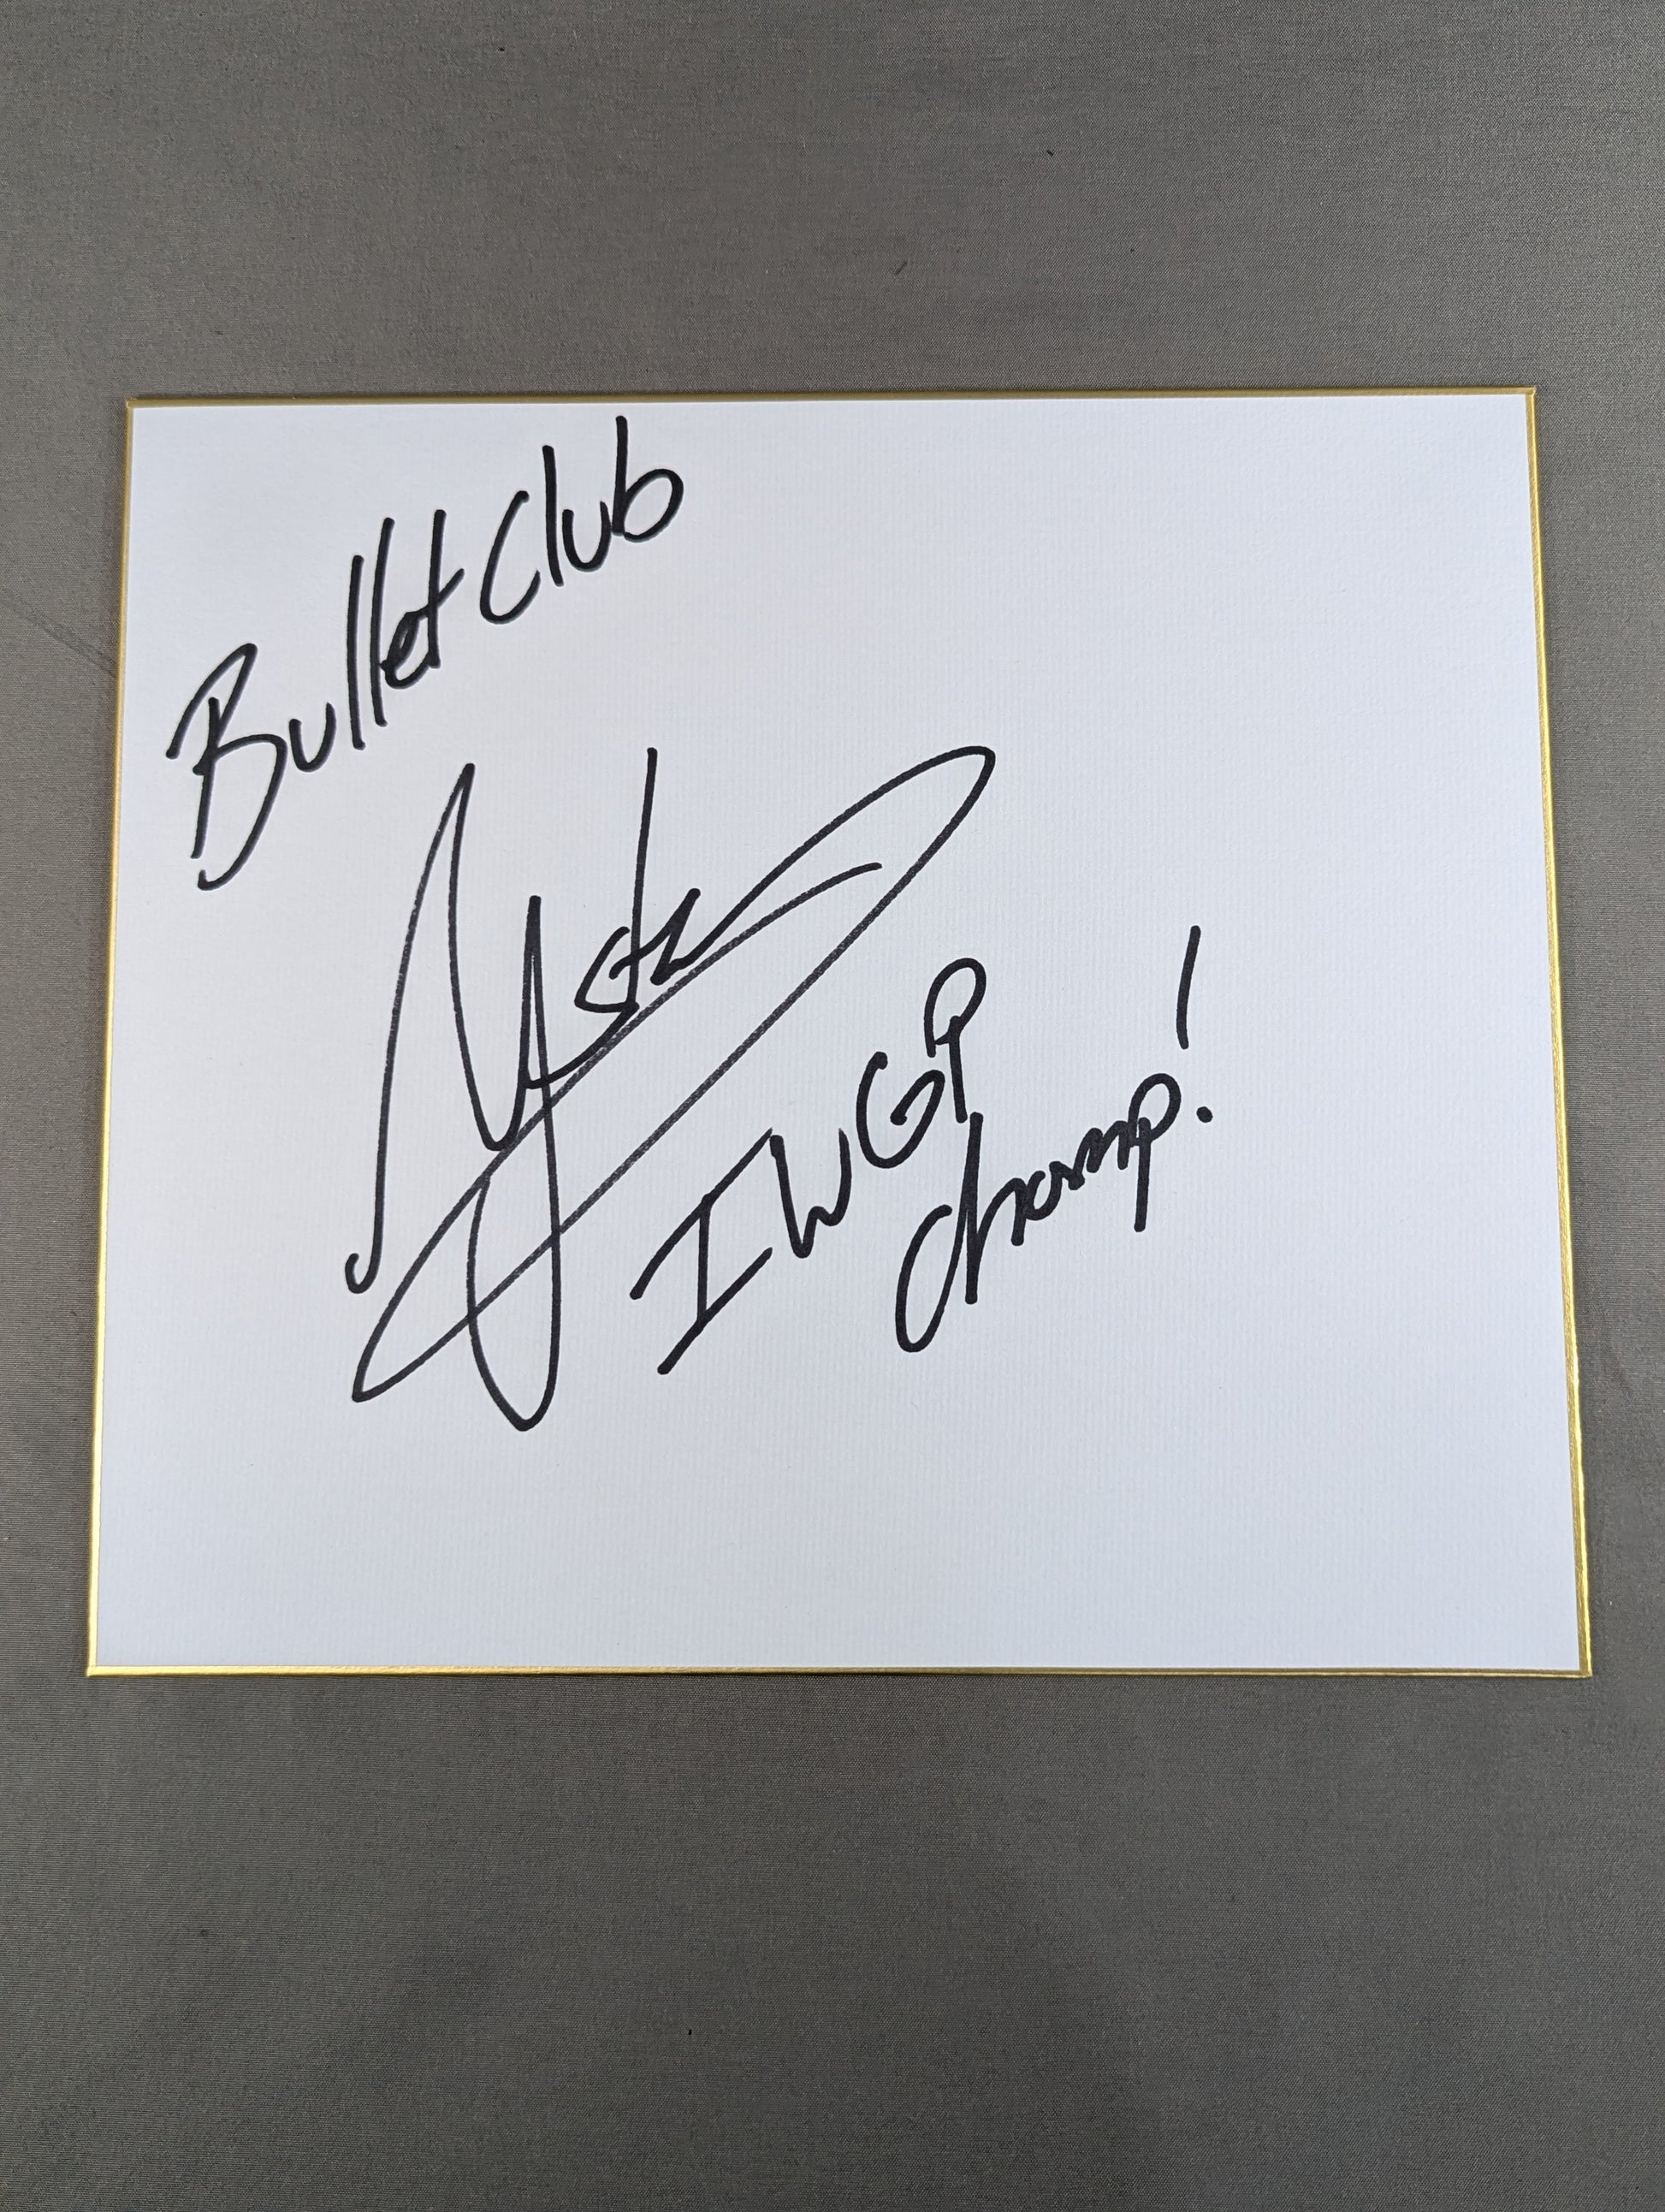 Bullet Club
IWGP
Champ!